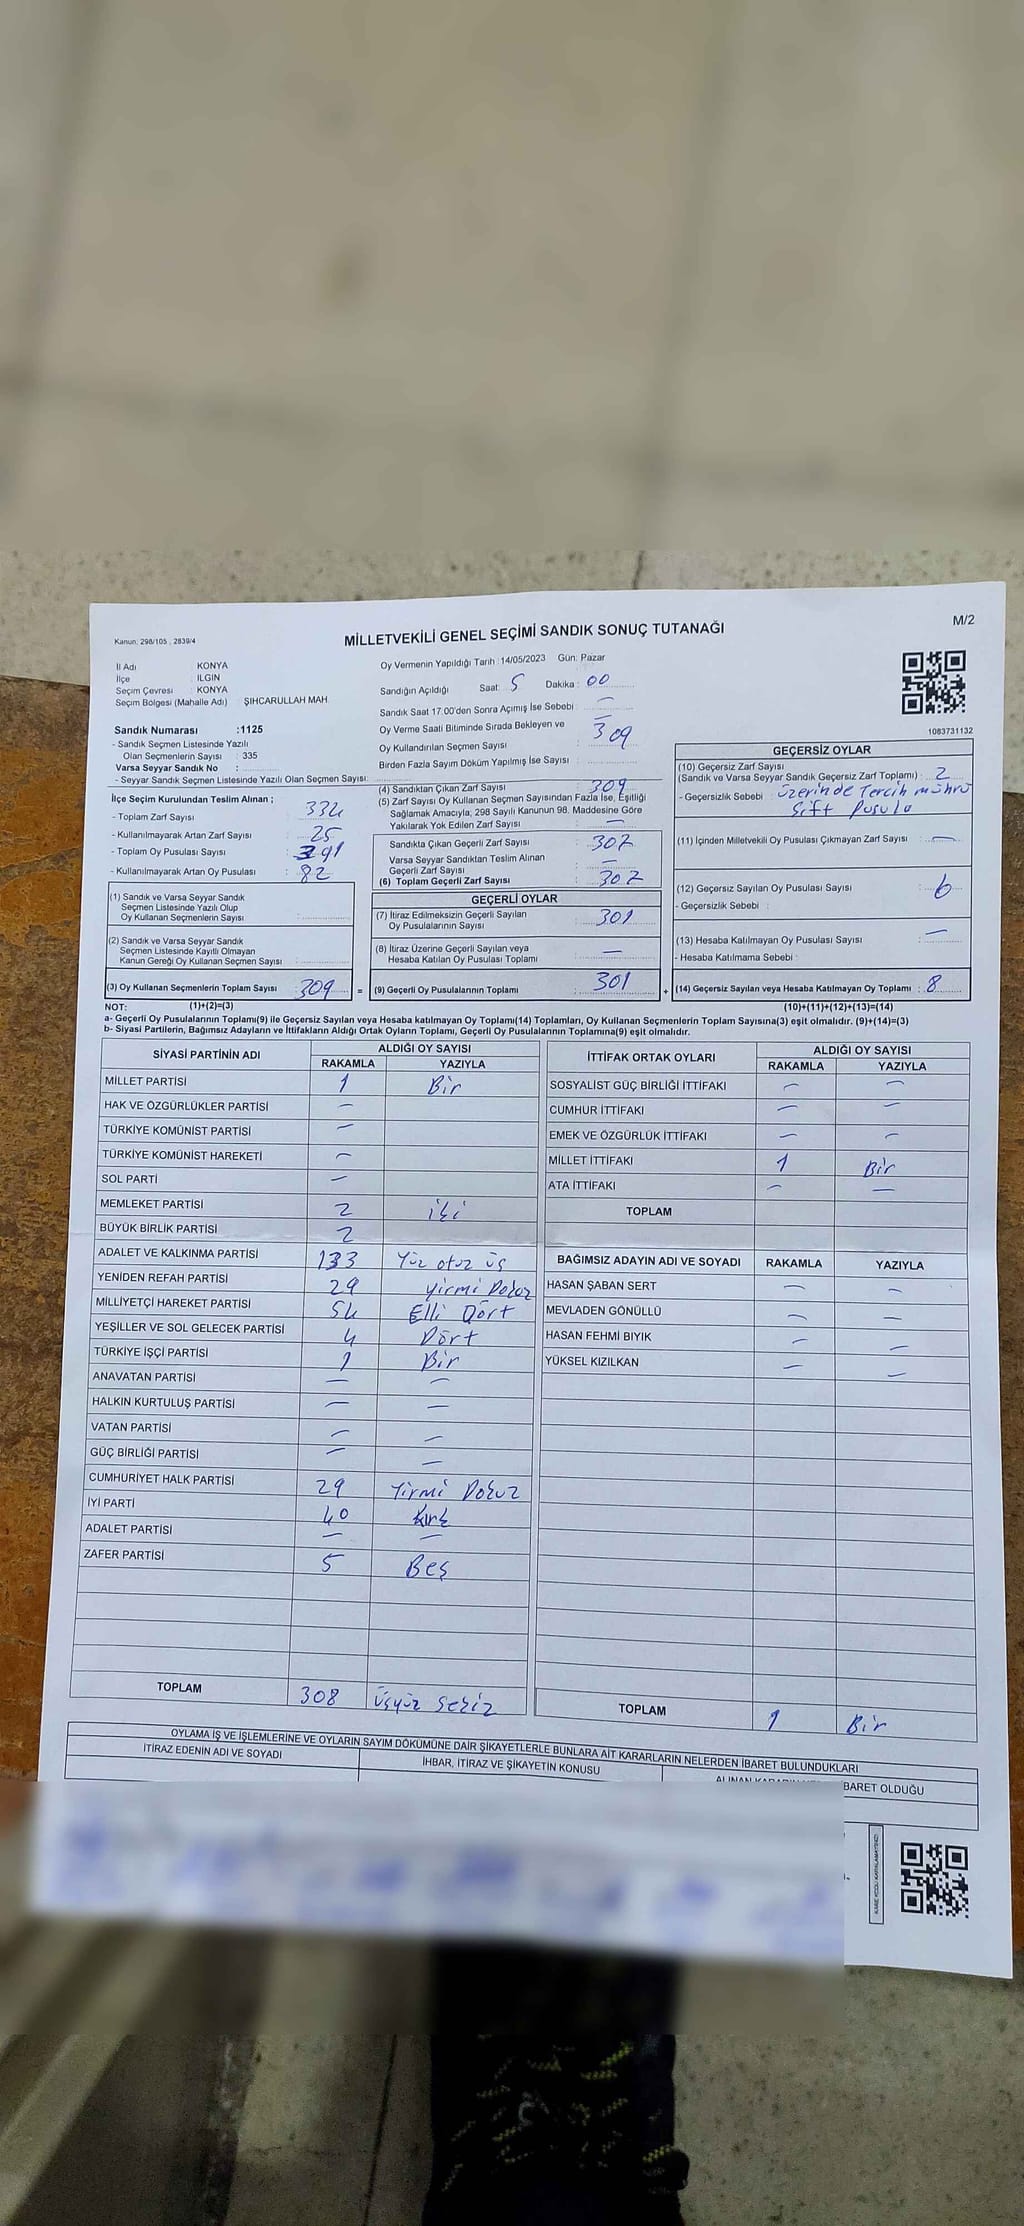 M/2
Kanun: 298/105 , 2839/4
MİLLETVEKİLİ GENEL SEÇİMİ SANDIK SONUÇ TUTANAĞI
İl Adı : KONYA
İlçe : ILGIN
Seçim Çevresi : KONYA
Seçim Bölgesi (Mahalle Adı) ŞIHCARULLAH MAH
Sandık Numarası :1125
- Sandık Seçmen Listesinde Yazılı
Olan Seçmenlerin Sayısı : 335
Varsa Seyyar Sandık No :
- Seyyar Sandık Seçmen Listesinde Yazılı Olan Seçmen Sayısı:
Oy Vermenin Yapıldığı Tarih :14/05/2023 Gün: Pazar
Sandığın Açıldığı Saat: 5 Dakika : 00
Sandık Saat 17.00'den Sonra Açımış İse Sebebi : —
Oy Verme Saati Bitiminde Sırada Bekleyen ve —
Oy Kullandırılan Seçmen Sayısı : 309
Birden Fazla Sayım Döküm Yapılmış İse Sayısı :
1083731132
İlçe Seçim Kurulundan Teslim Alınan ;
- Toplam Zarf Sayısı : 334
- Kullanılmayarak Artan Zarf Sayısı : 25
- Toplam Oy Pusulası Sayısı : 391
- Kullanılmayarak Artan Oy Pusulası : 82
(1) Sandık ve Varsa Seyyar Sandık
Seçmen Listesinde Yazılı Olup
Oy Kullanan Seçmenlerin Sayısı :
(2) Sandık ve Varsa Seyyar Sandık
Seçmen Listesinde Kayıtlı Olmayan
Kanun Gereği Oy Kullanan Seçmen Sayısı :
(3) Oy Kullanan Seçmenlerin Toplam Sayısı : 309 =
(4) Sandıktan Çıkan Zarf Sayısı : 309
(5) Zarf Sayısı Oy Kullanan Seçmen Sayısından Fazla İse, Eşitliği
Sağlamak Amacıyla; 298 Sayılı Kanunun 98. Maddesine Göre
Yakılarak Yok Edilen Zarf Sayısı : —
Sandıkta Çıkan Geçerli Zarf Sayısı : 307
Varsa Seyyar Sandıktan Teslim Alınan
Geçerli Zarf Sayısı : —
(6) Toplam Geçerli Zarf Sayısı : 307
GEÇERLİ OYLAR
(7) İtiraz Edilmeksizin Geçerli Sayılan
Oy Pusulalarının Sayısı : 301
(8) İtiraz Üzerine Geçerli Sayılan veya
Hesaba Katılan Oy Pusulası Toplamı : —
(9) Geçerli Oy Pusulalarının Toplamı : 301 +
GEÇERSİZ OYLAR
(10) Geçersiz Zarf Sayısı
(Sandık ve Varsa Seyyar Sandık Geçersiz Zarf Toplamı) : 2
- Geçersizlik Sebebi : üzerinde Tercih mührü
Çift Pusula
(11) İçinden Milletvekili Oy Pusulası Çıkmayan Zarf Sayısı : —
(12) Geçersiz Sayılan Oy Pusulası Sayısı : 6
- Geçersizlik Sebebi :
(13) Hesaba Katılmayan Oy Pusulası Sayısı : —
- Hesaba Katılmama Sebebi :
(14) Geçersiz Sayılan veya Hesaba Katılmayan Oy Toplamı : 8
NOT: (1)+(2)=(3) (10)+(11)+(12)+(13)=(14)
a- Geçerli Oy Pusulalarının Toplamı(9) ile Geçersiz Sayılan veya Hesaba katılmayan Oy Toplamı(14) Toplamları, Oy Kullanan Seçmenlerin Toplam Sayısına(3) eşit olmalıdır. (9)+(14)=(3)
b- Siyasi Partilerin, Bağımsız Adayların ve İttifakların Aldığı Ortak Oyların Toplamı, Geçerli Oy Pusulalarının Toplamına(9) eşit olmalıdır.
SİYASİ PARTİNİN ADI ALDIĞI OY SAYISI
RAKAMLA YAZIYLA
MİLLET PARTİSİ 1 Bir
HAK VE ÖZGÜRLÜKLER PARTİSİ —
TÜRKİYE KOMÜNİST PARTİSİ —
TÜRKİYE KOMÜNİST HAREKETİ —
SOL PARTİ —
MEMLEKET PARTİSİ 2 iki
BÜYÜK BİRLİK PARTİSİ 2
ADALET VE KALKINMA PARTİSİ 133 Yüz otuz üç
YENİDEN REFAH PARTİSİ 29 yirmi Dokuz
MİLLİYETÇİ HAREKET PARTİSİ 54 Elli Dört
YEŞİLLER VE SOL GELECEK PARTİSİ 4 Dört
TÜRKİYE İŞÇİ PARTİSİ 1 Bir
ANAVATAN PARTİSİ — —
HALKIN KURTULUŞ PARTİSİ — —
VATAN PARTİSİ — —
GÜÇ BİRLİĞİ PARTİSİ — —
CUMHURİYET HALK PARTİSİ 29 Yirmi Dokuz
İYİ PARTİ 40 Kırk
ADALET PARTİSİ — —
ZAFER PARTİSİ 5 Beş
TOPLAM 308 üçyüz sekiz
İTTİFAK ORTAK OYLARI ALDIĞI OY SAYISI
RAKAMLA YAZIYLA
SOSYALİST GÜÇ BİRLİĞİ İTTİFAKI — —
CUMHUR İTTİFAKI — —
EMEK VE ÖZGÜRLÜK İTTİFAKI — —
MİLLET İTTİFAKI 1 Bir
ATA İTTİFAKI — —
TOPLAM
BAĞIMSIZ ADAYIN ADI VE SOYADI RAKAMLA YAZIYLA
HASAN ŞABAN SERT — —
MEVLADEN GÖNÜLLÜ — —
HASAN FEHMİ BIYIK — —
YÜKSEL KIZILKAN — —
TOPLAM 1 Bir
OYLAMA İŞ VE İŞLEMLERİNE VE OYLARIN SAYIM DÖKÜMÜNE DAİR ŞİKAYETLERLE BUNLARA AİT KARARLARIN NELERDEN İBARET BULUNDUKLARI
İTİRAZ EDENİN ADI VE SOYADI İHBAR, İTİRAZ VE ŞİKAYETİN KONUSU BARET OLDUĞU